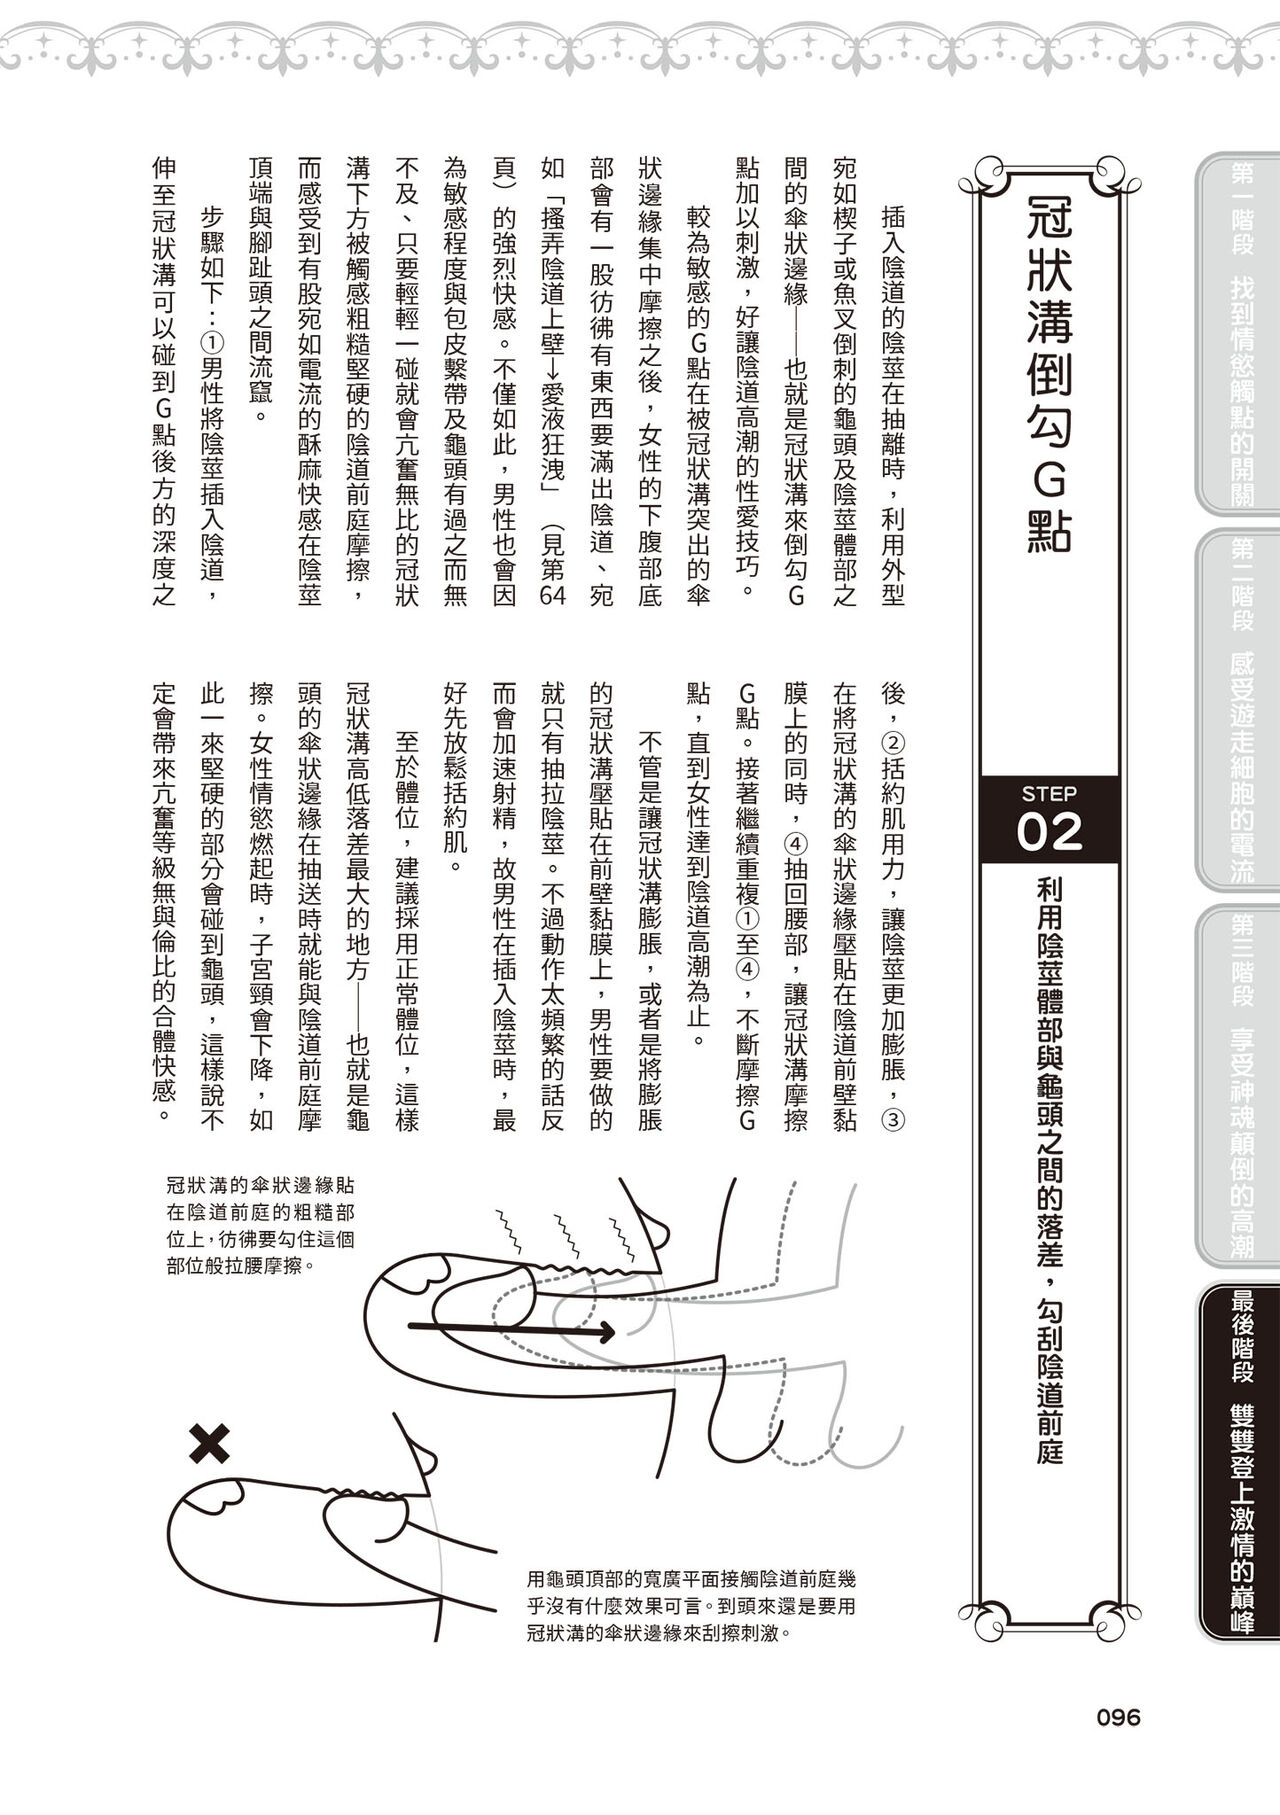 冠狀溝倒勾G點
STEP
02
利用陰莖體部與龜頭之間的落差，勾刮陰道前庭
插入陰道的陰莖在抽離時，利用外型
宛如楔子或魚叉倒刺的龜頭及陰莖體部之
間的傘狀邊緣——也就是冠狀溝來倒勾G
點加以刺激，好讓陰道高潮的性愛技巧。
較為敏感的G點在被冠狀溝突出的傘
狀邊緣集中摩擦之後，女性的下腹部底
部會有一股彷彿有東西要滿出陰道、宛
如「搔弄陰道上壁→愛液狂洩」（見第64
頁）的強烈快感。不僅如此，男性也會因
為敏感程度與包皮繫帶及龜頭有過之而無
不及、只要輕輕一碰就會亢奮無比的冠狀
溝下方被觸感粗糙堅硬的陰道前庭摩擦，
而感受到有股宛如電流的酥麻快感在陰莖
頂端與腳趾頭之間流竄。
步驟如下：①男性將陰莖插入陰道，
伸至冠狀溝可以碰到G點後方的深度之
後，②括約肌用力，讓陰莖更加膨脹，③
在將冠狀溝的傘狀邊緣壓貼在陰道前壁黏
膜上的同時，④抽回腰部，讓冠狀溝摩擦
G點。接著繼續重複①至④，不斷摩擦G
點，直到女性達到陰道高潮為止。
不管是讓冠狀溝膨脹，或者是將膨脹
的冠狀溝壓貼在前壁黏膜上，男性要做的
就只有抽拉陰莖。不過動作太頻繁的話反
而會加速射精，故男性在插入陰莖時，最
好先放鬆括約肌。
至於體位，建議採用正常體位，這樣
冠狀溝高低落差最大的地方——也就是龜
頭的傘狀邊緣在抽送時就能與陰道前庭摩
擦。女性情慾燃起時，子宮頸會下降，如
此一來堅硬的部分會碰到龜頭，這樣說不
定會帶來亢奮等級無與倫比的合體快感。
冠狀溝的傘狀邊緣貼
在陰道前庭的粗糙部
位上，彷彿要勾住這個
部位般拉腰摩擦。
用龜頭頂部的寬廣平面接觸陰道前庭幾
乎沒有什麼效果可言。到頭來還是要用
冠狀溝的傘狀邊緣來刮擦刺激。
第一階段 找到情慾觸點的開關
第二階段 感受遊走細胞的電流
第三階段 享受神魂顛倒的高潮
最後階段 雙雙登上激情的巔峰
096